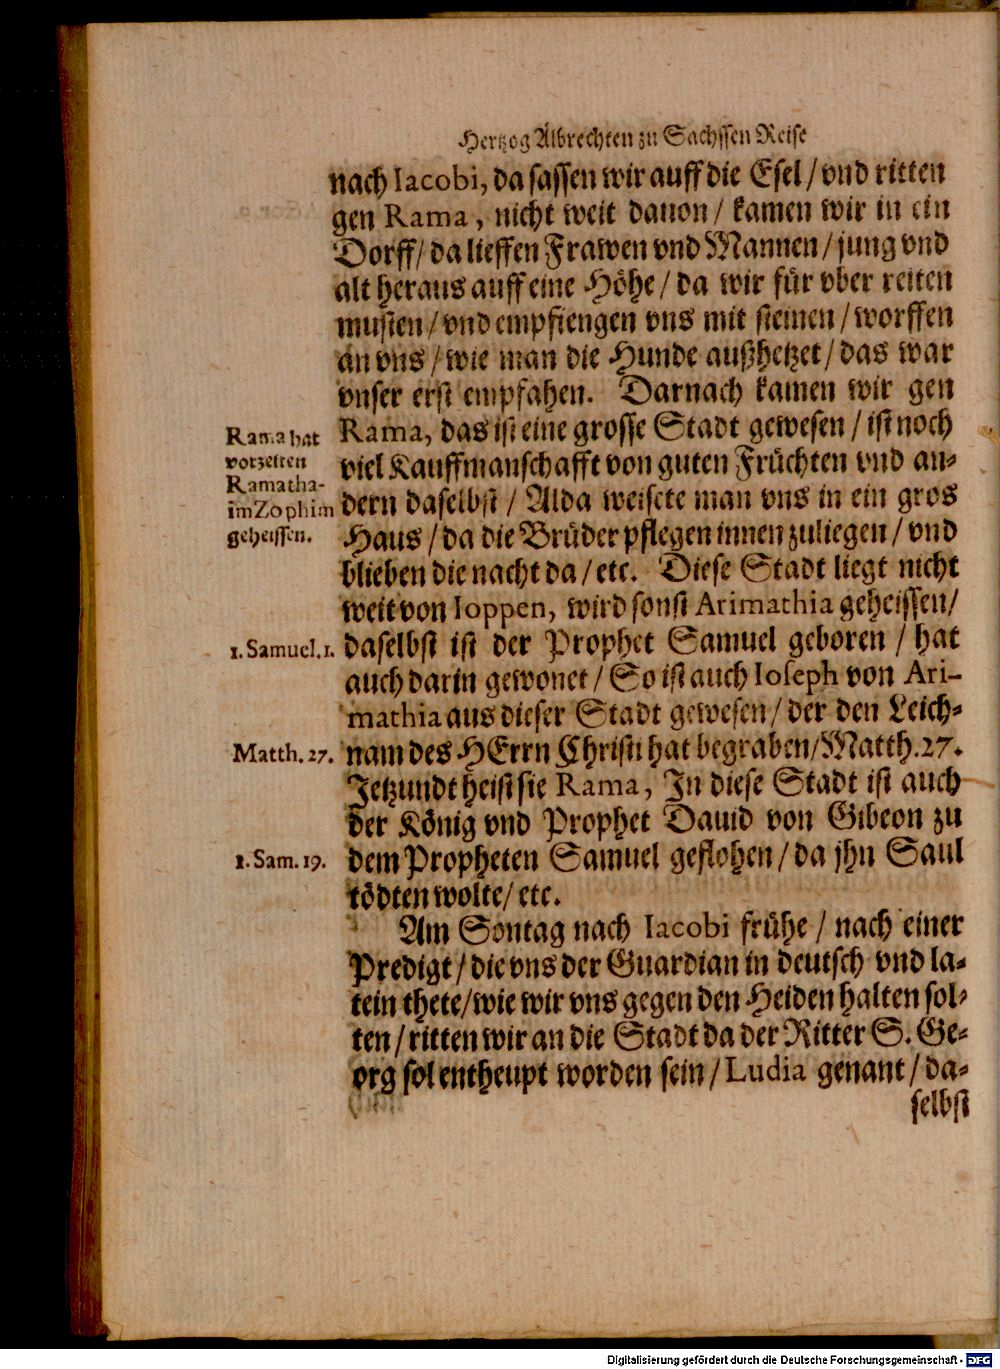 Hertzog Albrechten zu Sachssen Reise
nach Iacobi, da sassen wir auff die Esel / vnd ritten
gen Rama, nicht weit dauon / kamen wir in ein
Dorff / da lieffen Frawen vnd Mannen / jung vnd
alt heraus auff eine Höhe / da wir für vber reiten
musten / vnd empfiengen vns mit steinen / worffen
an vns / wie man die Hunde außhetzet / das war
vnser erst empfahen. Darnach kamen wir gen
Rama, das ist eine grosse Stadt gewesen / ist noch
viel Kauffmanschafft von guten Früchten vnd an-
dern daselbst / Alda weisete man vns in ein gros
Haus / da die Brüder pflegen innen zuliegen / vnd
blieben die nacht da / etc. Diese Stadt liegt nicht
weit von Ioppen, wird sonst Arimathia geheissen /
daselbst ist der Prophet Samuel geboren / hat
auch darin gewonet / So ist auch Ioseph von Ari-
mathia aus dieser Stadt gewesen / der den Leich-
nam des HErrn Christi hat begraben / Matth. 27.
Jetzundt heist sie Rama, In diese Stadt ist auch
der König vnd Prophet Dauid von Gibeon zu
dem Propheten Samuel geflohen / da jhn Saul
tödten wolte / etc.
Am Sontag nach Iacobi frühe / nach einer
Predigt / die vns der Guardian in deutsch vnd la-
tein thete / wie wir vns gegen den Heiden halten sol-
ten / ritten wir an die Stadt da der Ritter S. Ge-
org sol entheupt worden sein / Ludia genant / da-
selbst
Rama hat
vorzeiten
Ramatha-
im Zophim
geheissen.
1. Samuel. 1.
Matth. 27.
1. Sam. 19.
Digitalisierung gefördert durch die Deutsche Forschungsgemeinschaft - DFG